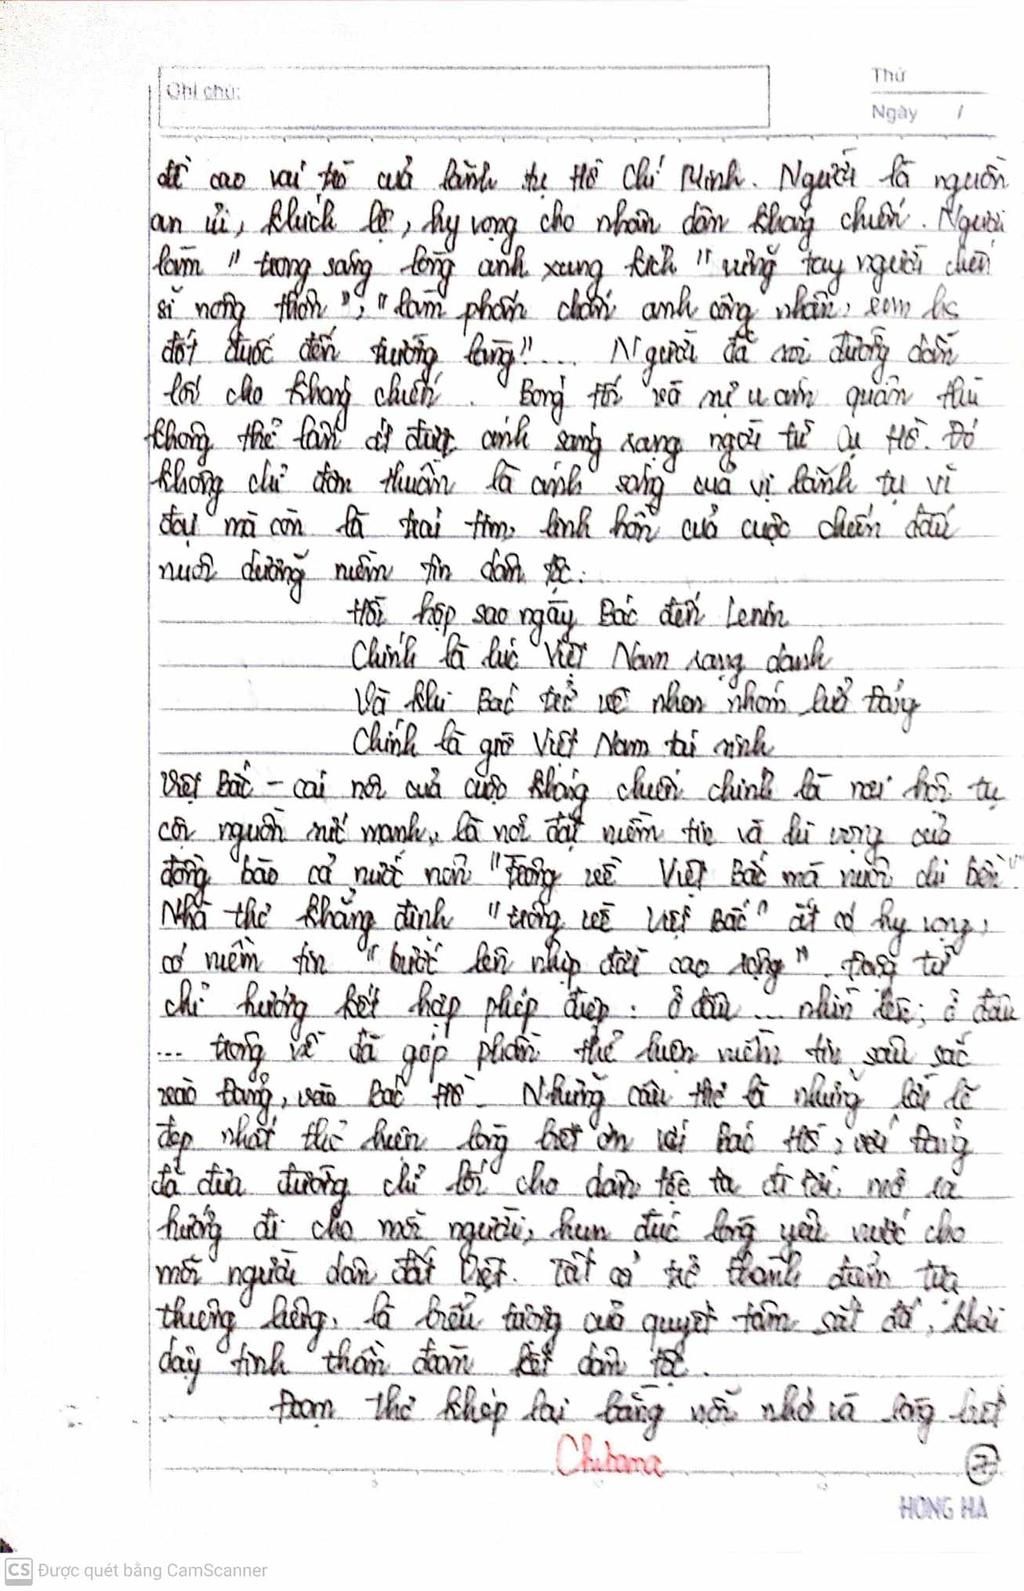 Ghi chú:
Thứ
Ngày /
đề cao vai trò của lãnh tụ Hồ Chí Minh. Người là nguồn
an ủi, khích lệ, hy vọng cho nhân dân kháng chiến. Người
làm "trong sáng lòng anh xung kích" vững tay người chiến
sĩ nông thôn", "làm phấn chấn anh công nhân, em bé
đốt đuốc đến trường làng!"... Người đã soi đường dẫn
lối cho kháng chiến. Bóng tối và sự u ám quân thù
không thể lấn át được ánh sáng sáng ngời từ Cụ Hồ. Đó
không chỉ đơn thuần là ánh sáng của vị lãnh tụ vĩ
đại mà còn là trái tim, linh hồn của cuộc chiến đấu
nuôi dưỡng niềm tin dân tộc:
Hồi hộp sao ngày Bác đến Lenin
Chính là lúc Việt Nam rạng danh
Và khi Bác trở về nhen nhóm lửa
Chính là giờ Việt Nam tái sinh
Việt Bắc - cái nôi của cuộc kháng chiến chính là nơi hội tụ
cội nguồn sức mạnh, là nơi đặt niềm tin và hi vọng của
đồng bào cả nước non "Trông về Việt Bắc mà nuôi chí bền".
Nhà thơ khẳng định "trông về Việt Bắc" ắt có hy vọng,
có niềm tin "bước lên nhịp đời cao rộng". Động từ
chỉ hướng kết hợp phép điệp: ở đâu ... nhìn lên; ở đâu
... trông về đã góp phần thể hiện niềm tin sâu sắc
vào Đảng, vào Bác Hồ. Những câu thơ là những lời lẽ
đẹp nhất thể hiện lòng biết ơn với Bác Hồ, với Đảng
đã đưa đường chỉ lối cho dân tộc ta đi tới, mở ra
hướng đi cho mỗi người, hun đúc lòng yêu nước cho
mỗi người dân đất Việt. Tất cả trở thành điểm tựa
thiêng liêng, là biểu tượng của quyết tâm sắt đá, khơi
dậy tinh thần đoàn kết dân tộc.
Đoạn thơ khép lại bằng nỗi nhớ và lòng biết
7
HONG HA
CS Được quét bằng CamScanner